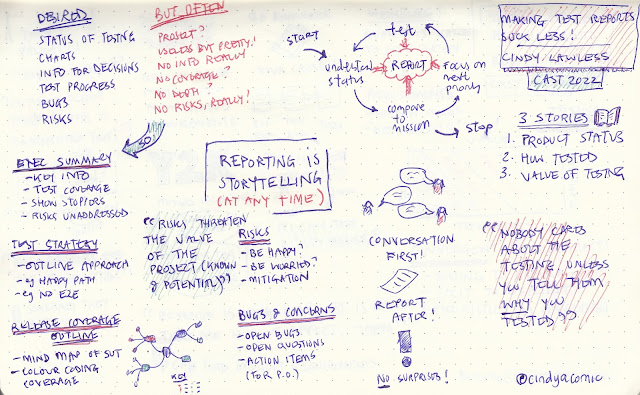 DESIRED
STATUS OF TESTING
CHARTS
INFO FOR DECISIONS
TEST PROGRESS
BUGS
RISKS
BUT OFTEN
PROJECT?
USELESS BUT PRETTY!
NO INFO REALLY
NO COVERAGE?
NO DEPTH?
NO RISKS, REALLY!
SO
START
test
understand
status
REPORT
Focus on
next
priority
compare
to
mission
STOP
MAKING TEST REPORTS
SUCK LESS!
CINDY LAWLESS
CAST 2022
3 STORIES
1. PRODUCT STATUS
2. HOW TESTED
3. VALUE OF TESTING
EXEC SUMMARY
- KEY INFO
- TEST COVERAGE
- SHOW STOPPERS
- RISKS UNADDRESSED
REPORTING IS
STORYTELLING
(AT ANY TIME)
TEST STRATEGY
- OUTLINE APPROACH
- eg HAPPY PATH
- eg NO E2E
"RISKS THREATEN
THE VALUE
OF THE
PROJECT (KNOWN
& POTENTIAL)"
RISKS
- BE HAPPY?
- BE WORRIED?
- MITIGATION
CONVERSATION
FIRST!
REPORT
AFTER!
NO SURPRISES!
"NOBODY CARES
ABOUT THE
TESTING UNLESS
YOU TELL THEM
WHY YOU
TESTED"
RELEASE COVERAGE
OUTLINE
- MIND MAP OF SUT
- COLOUR CODING
COVERAGE
KEY
BUGS & CONCERNS
- OPEN BUGS
- OPEN QUESTIONS
- ACTION ITEMS
(FOR P.O.)
@cindyacomic